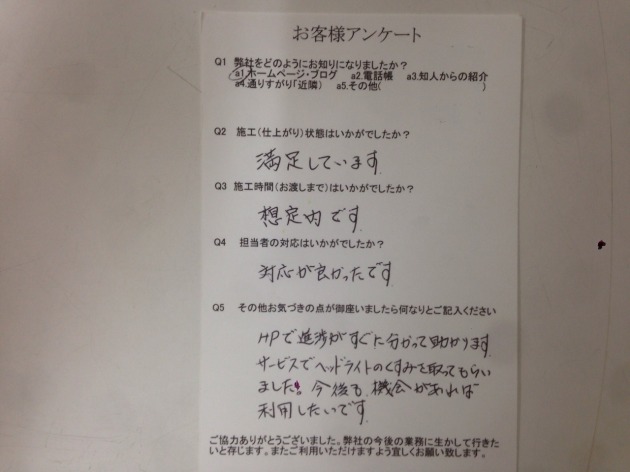 お客様アンケート
Q1 弊社をどのようにお知りになりましたか?
a1.ホームページ・ブログ a2.電話帳 a3.知人からの紹介
a4.通りすがり「近隣) a5.その他( )
Q2 施工(仕上がり)状態はいかがでしたか?
満足しています。
Q3 施工時間(お渡しまで)はいかがでしたか?
想定内です。
Q4 担当者の対応はいかがでしたか?
対応が良かったです。
Q5 その他お気づきの点が御座いましたら何なりとご記入ください
HPで進渉がすぐに分かって助かります。
サービスでヘッドライトのくすみを取ってもらい
ました。今後も、機会があれば
利用したいです。
ご協力ありがとうございました。弊社の今後の業務に生かして行きた
いと存じます。またご利用いただけますよう宜しくお願い致します。